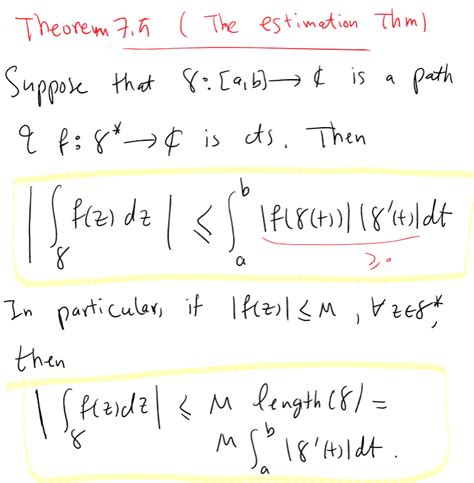 Theorem 7.5 ( The estimation Thm)
Suppose that γ: [a,b] → ℂ is a path
& f: γ* → ℂ is cts. Then
| ∫_γ f(z) dz | ≤ ∫_a^b |f(γ(t))| |γ'(t)| dt
≥0
In particular, if |f(z)| ≤ M, ∀ z∈γ*,
then
| ∫_γ f(z) dz | ≤ M length(γ) =
M ∫_a^b |γ'(t)| dt.